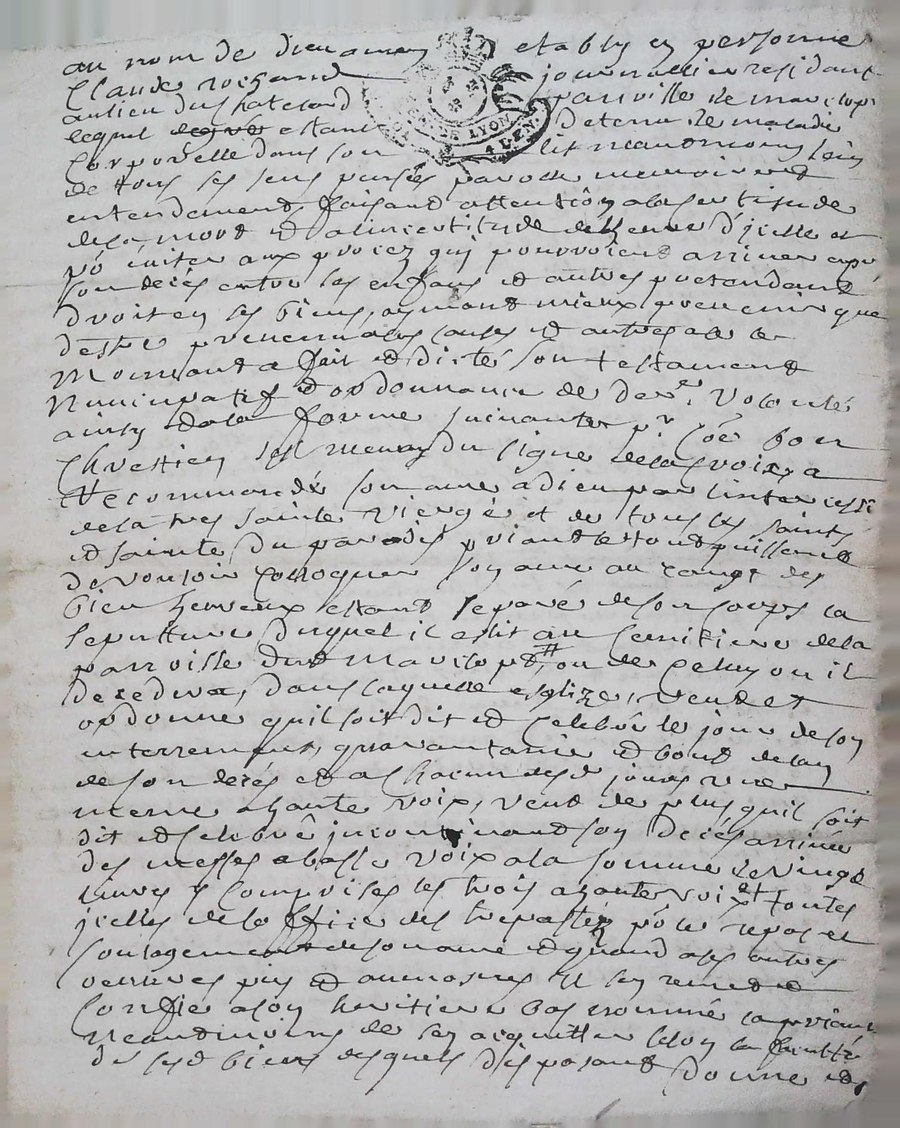 au nom de dieu amen etably en personne
Claude rochand journallier residant
au lieu du Chatelard parroisse de marclop
lequel estant detenu de maladie
Corporelle dans son lit neantmoins sain
de tous ses sens pensées parolle memoire et
entendement faisant attention a la sertitude
de la mort et a l'incertitude de l'heure d'jcelle et
po' eviter aux procez quj pourroient arriver apr
son decés entre ses enfans et autres pretendant
droit en ses biens, aymant mieux prevenir que
destre prevenu a ses causes et autres a ce le
Mouvant a fait et dicté son testament
Nuncupatif et ordonnance de der.re Volonté
ainsy de la forme suivante pr. Coe bon
Chrestien sest muny du signe de la Croix, a
Recommandé son ame a dieu par l'intercessi
de la tres sainte Vierge et de tous les saints
et sainte du paradis priant le tout puissant
de Vouloir Colloquer son ame au rangt des
bien heureux estant separé de son Corps la
sepulture duquel il eslit au Cemitiere de la
parroisse dud Marclopt, ou de Celuy ou il
decedera, dans laquelle esglize, Veut et
ordonne quil soit dit et Celebré le jour de son
enterrement, quarantaine et bout de lan
de son decés et a Chacun desd jours une
Messe a haute voix, veut de plus quil soit
dit et Celebré incontinand son decés arrivé
des messes a basse voix a la somme de Vingt
Livres y Comprises les trois a haute voix et toutes
jcelles de loffice des trepassez po' le repos et
soulagement de son ame et quand a ses autres
oeuvres pies et aumosnes il sen remet et
Confie a son heritier bas nommé la priant
Neantmoins de sen acquitter selon la faculté
de sesd biens desquels disposant donne et
DE LYON
4 DEN.